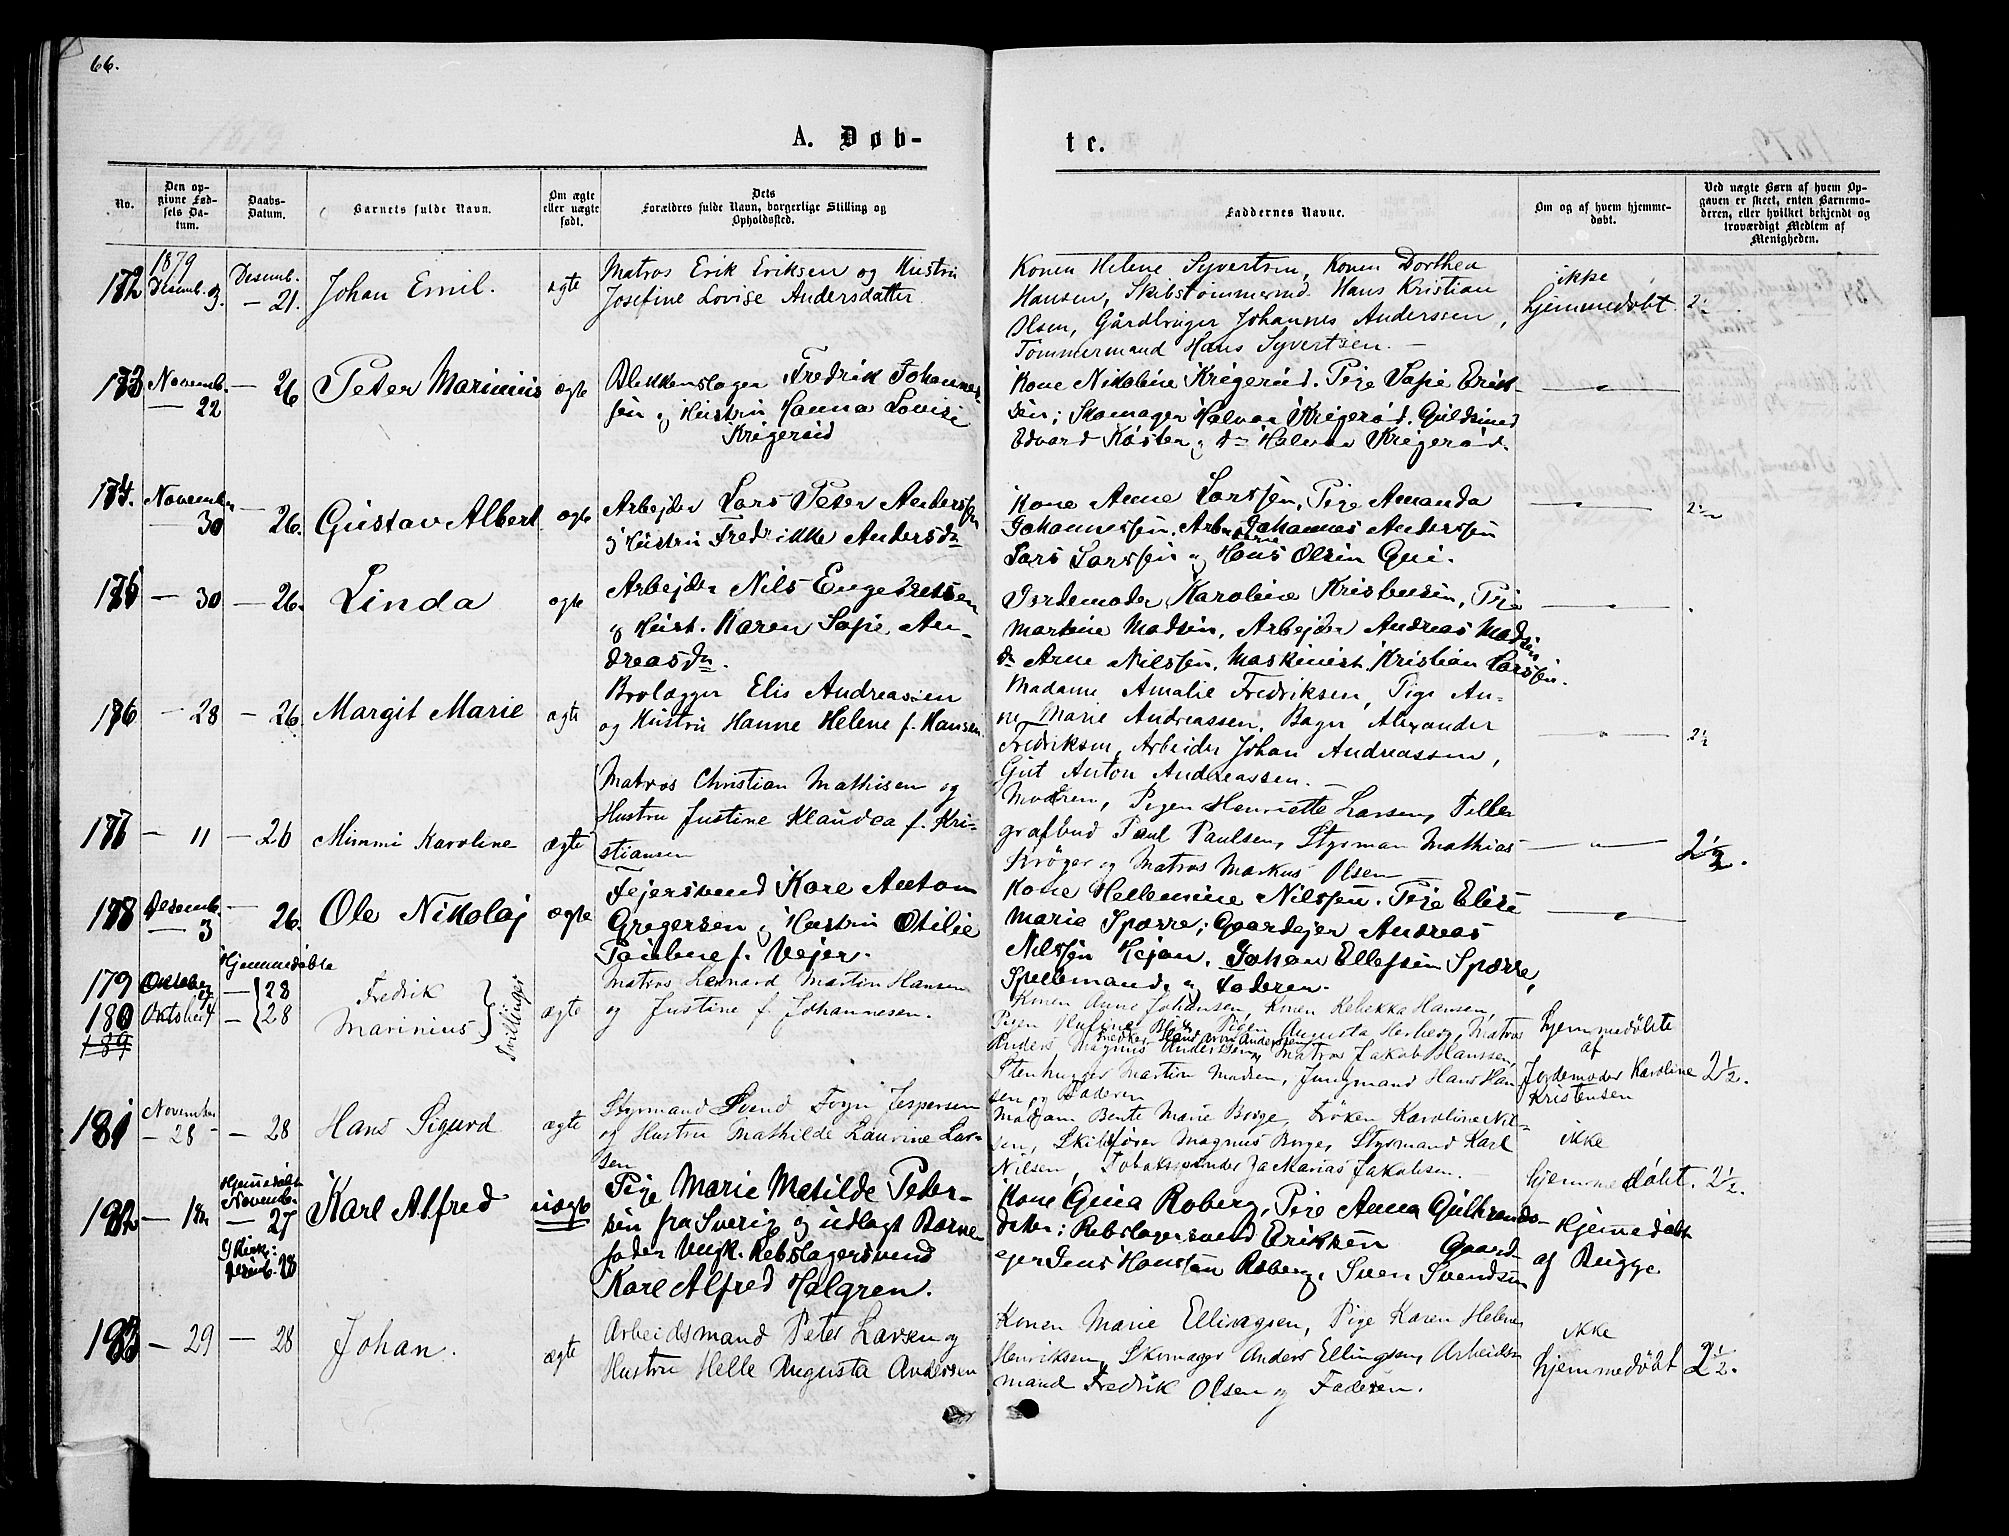 66.
A. Døb-
te.
No.
Den opgivne Fødsels Datum.
Daabs-Datum.
Barnets fulde Navn.
Om ægte eller uægte født.
Dets Forældres fulde Navn, borgerlige Stilling og Opholdssted.
Faddernes Navne.
Om og af hvem hjemmedøbt.
Ved uægte Børn af hvem Opgaven er skeet, enten Barnemoderen, eller hvilket bekjendt og troværdigt Medlem af Menigheden.
172
1879
Desemb. 3.
Desemb.
— 21.
Johan Emil.
ægte
Matros Erik Eriksen og Hustru
Josefine Lovise Andersdatter
Konen Helene Syvertsen, Konen Dorthea
Hansen, Skibstømmermd. Hans Kristian
Olsen, Gårdbruger Johannes Anderssen,
Tømmermand Hans Syvertsen. —
ikke
hjemmedøbt.
173
Novemb.
— 22
— 26
Peter Marinius
ægte
Blikkenslager Fredrik Johannes-
sen og Hustru Hanna Lovise
Krigerød
Kone Nikoline Krigerød. Pige Sofie Erik-
sen; Skomager Halvor Krigerød. Guldsmed
Edvard Køster og do Halvor Krigerød.
174.
November
— 30
— 26.
Gustav Albert
ægte
Arbejder Lars Peter Anderssen
og Hustru Fredrikke Andersdtr
Kone Anne Larssen, Pige Amanda
Johannessen. Arb. Johannes Anderssen
Lars Larssen og Hans Olsen Gui.
175
— 30
— 26.
Linda
ægte
Arbejder Nils Engebretsen
og Hust. Karen Sofie An-
dreasdtr.
Jordemoder Karoline Kristensen, Pige
Martine Madsen, Arbejder Andreas Madsen
do Arne Nilssen. Maskinist Kristian Larssen.
176
— 28
— 26
Margit Marie
ægte
Brolægger Elis Andreassen
og Hustru Hanne Helene f. Hansen.
Madame Amalie Fredriksen, Pige An-
ne Marie Andreassen, Bager Alexander
Fredriksen, Arbeider Johan Andreassen,
Gut Anton Andreassen.
2½
177
— 11
— 26
Mimmi Karoline
ægte
Matros Christian Mathisen og
Hustru Justine Klaudea f. Kri-
stiansen
Modren, Pigen Henriette Larsen, Tele-
grafbud Paul Paulsen, Styrman Mathias
Krøger og Matros Markus Olsen
2½.
178
Desemb.
— 3
— 26.
Ole Nikolaj
ægte
Fejersvend Karl Anton
Gregersen og Hustru Otilie
Pauline f. Vejer.
Kone Hellemine Nilssen. Pige Elise
Marie Sparre; Gaardejer Andreas
Nilssen Hejan, Johan Ellefsen Sparre,
Spellemand, og Faderen.
179
180
189
Oktober
Oktober 4
Hjemmedøbte
— 28
— 28
Fredrik
Marinius
Tvillinger
ægte
Matros Lennard Martin Hansen
og Justine f. Johannesen.
Konen Anne Johansen, Konen Rebekka Hansen,
Pigen Augusta Herberg, Matros
Anders Magnus Andersen, Matros Jakob Hanssen,
Stenhugger Martin Madsen, Jungmand Hans Han-
sen og Faderen
hjemmedøbte
af
Jordemoder Karoline
Kristensen
2½.
181
November
— 28
— 28
Hans Sigurd
ægte
Styrmand Svend Foyn Jespersen
og Hustru Mathilde Laurine Lar-
sen
Madam Bente Marie Borge, Frøken Karoline Nil-
sen, Skibsfører Magnus Borge, Styrmand Karl
Nilsen, Tobakspinder Zackarias Jakobsen.
ikke
hjemmedøbt.
2½.
182
— 18
Hjemmedøbt
November
— 27
Desemb. 28
Karl Alfred
uægte
Pige Marie Matilde Peder-
sen fra Sverig og udlagt Barne-
fader Ungk. Rebslagersvend
Karl Alfred Holgren.
Kone Gina Roberg, Pige Anna Gulbrands-
datter; Rebslagersvend Eriksen Gaard-
ejer Jens Hanssen Roberg, Sven Svendsen
Hjemmedøbt
af Bugge
183
— 29
— 28
Johan.
ægte
Arbeidsmand Peter Larsen og
Hustru Helle Augusta Andersen
Konen Marie Ellingsen, Pige Karen Helene
Henriksen, Skomager Anders Ellingsen, Arbeids-
mand Fredrik Olsen og Faderen.
ikke
hjemmedøbt
2½.